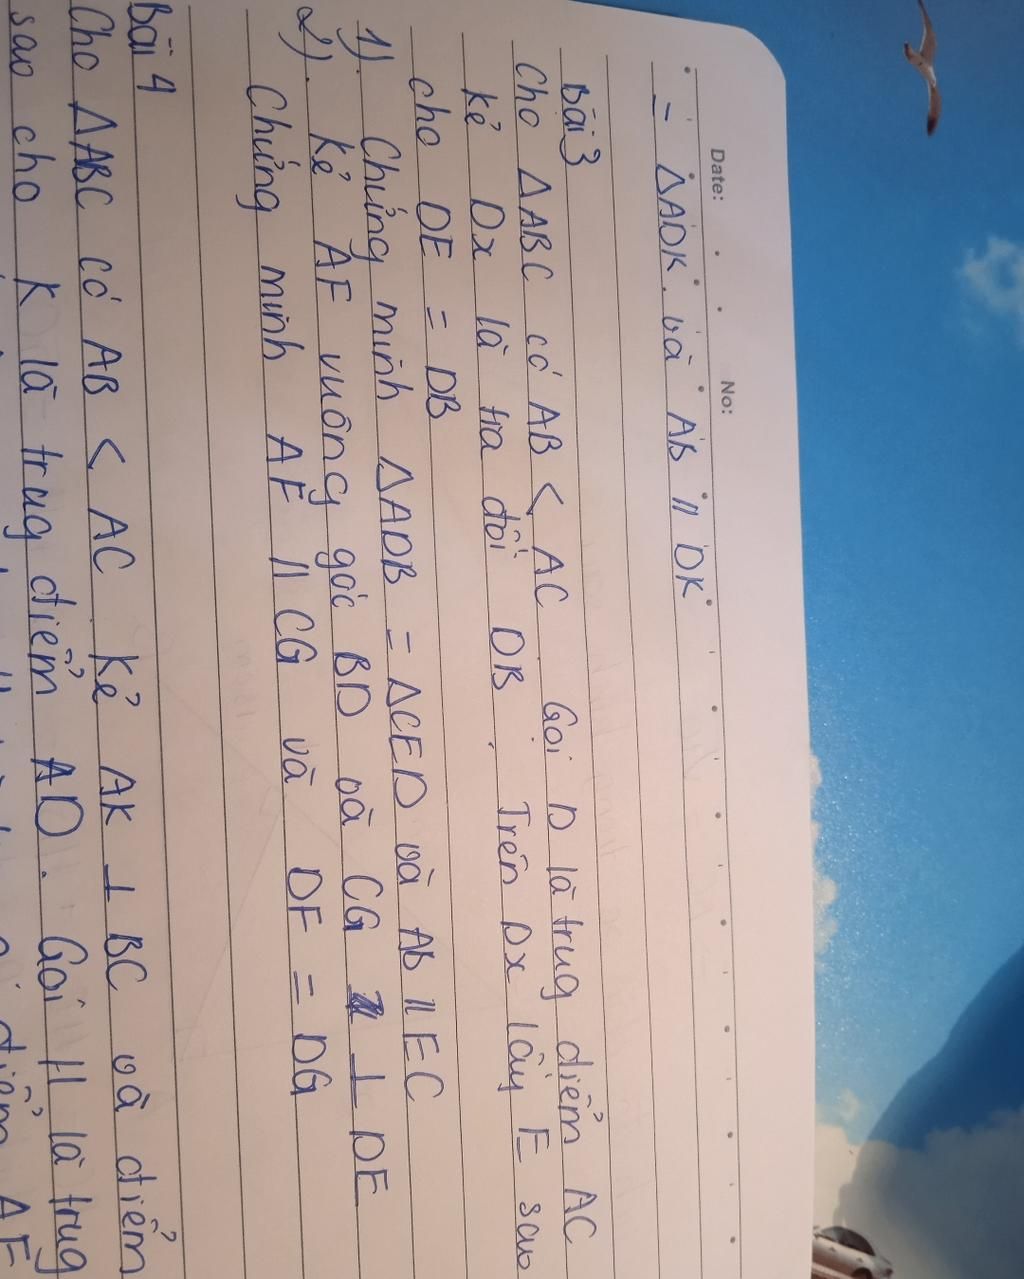 Date: No:
= ΔADK và AB // DK
Bài 3
Cho ΔABC có AB < AC Gọi D là trug điểm AC
kẻ Dx là tia đối DB. Trên Dx lấy E sao
cho DE = DB
1) Chứng minh ΔADB = ΔCED và AB // EC
2). kẻ AF vuông góc BD và CG ⊥ DE
Chứng minh AF // CG và DF = DG
Bài 4
Cho ΔABC có AB < AC kẻ AK ⊥ BC và điểm
sao cho K là trug điểm AD. Gọi là trug
điểm AF